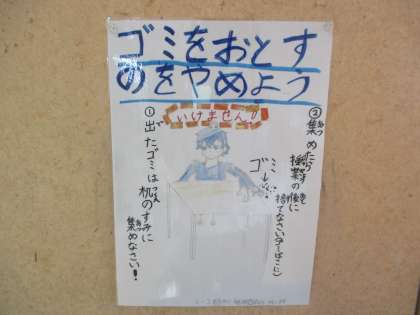 ゴミをおとす
のをやめよう
いけません!!
①出たゴミは机のすみに
集めなさい!
②集めたら
授業の後に
捨てなさい(ゴミばこに)
ゴミ